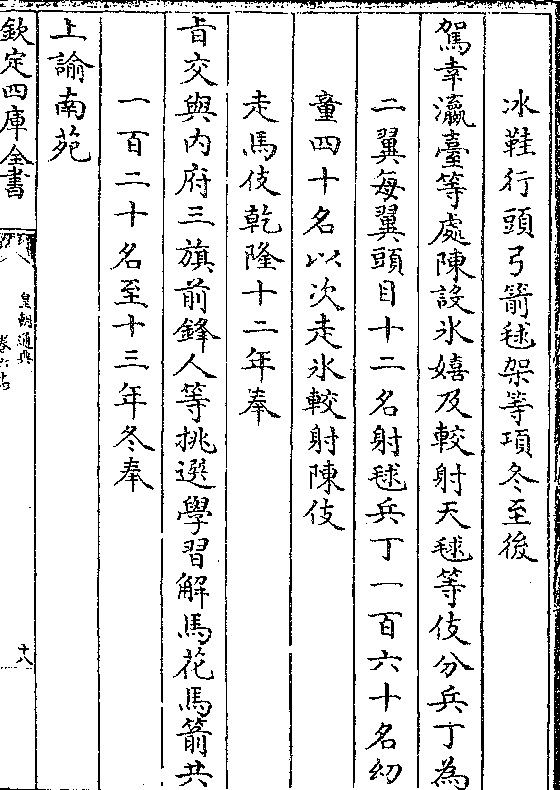 冰鞋行頭弓箭毬架等項冬至後
駕幸瀛臺等處陳設氷嬉及較射天毬等伎分兵丁為
二翼每翼頭目十二名射毬兵丁一百六十名幼
童四十名以次走氷較射陳伎
走馬伎乾隆十二年奉
旨交與内府三旗前鋒人等挑選學習解馬花馬箭共
一百二十名至十三年冬奉
上諭南苑
欽定四庫全書
皇朝通典
十八